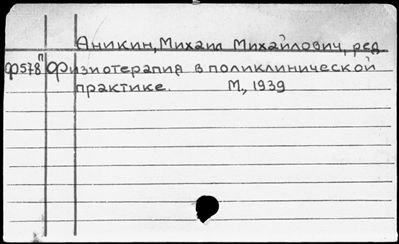 Аникин, Михаил Михайлович, ред
Ф578П Физиотерапия в поликлинической
практике. М., 1939